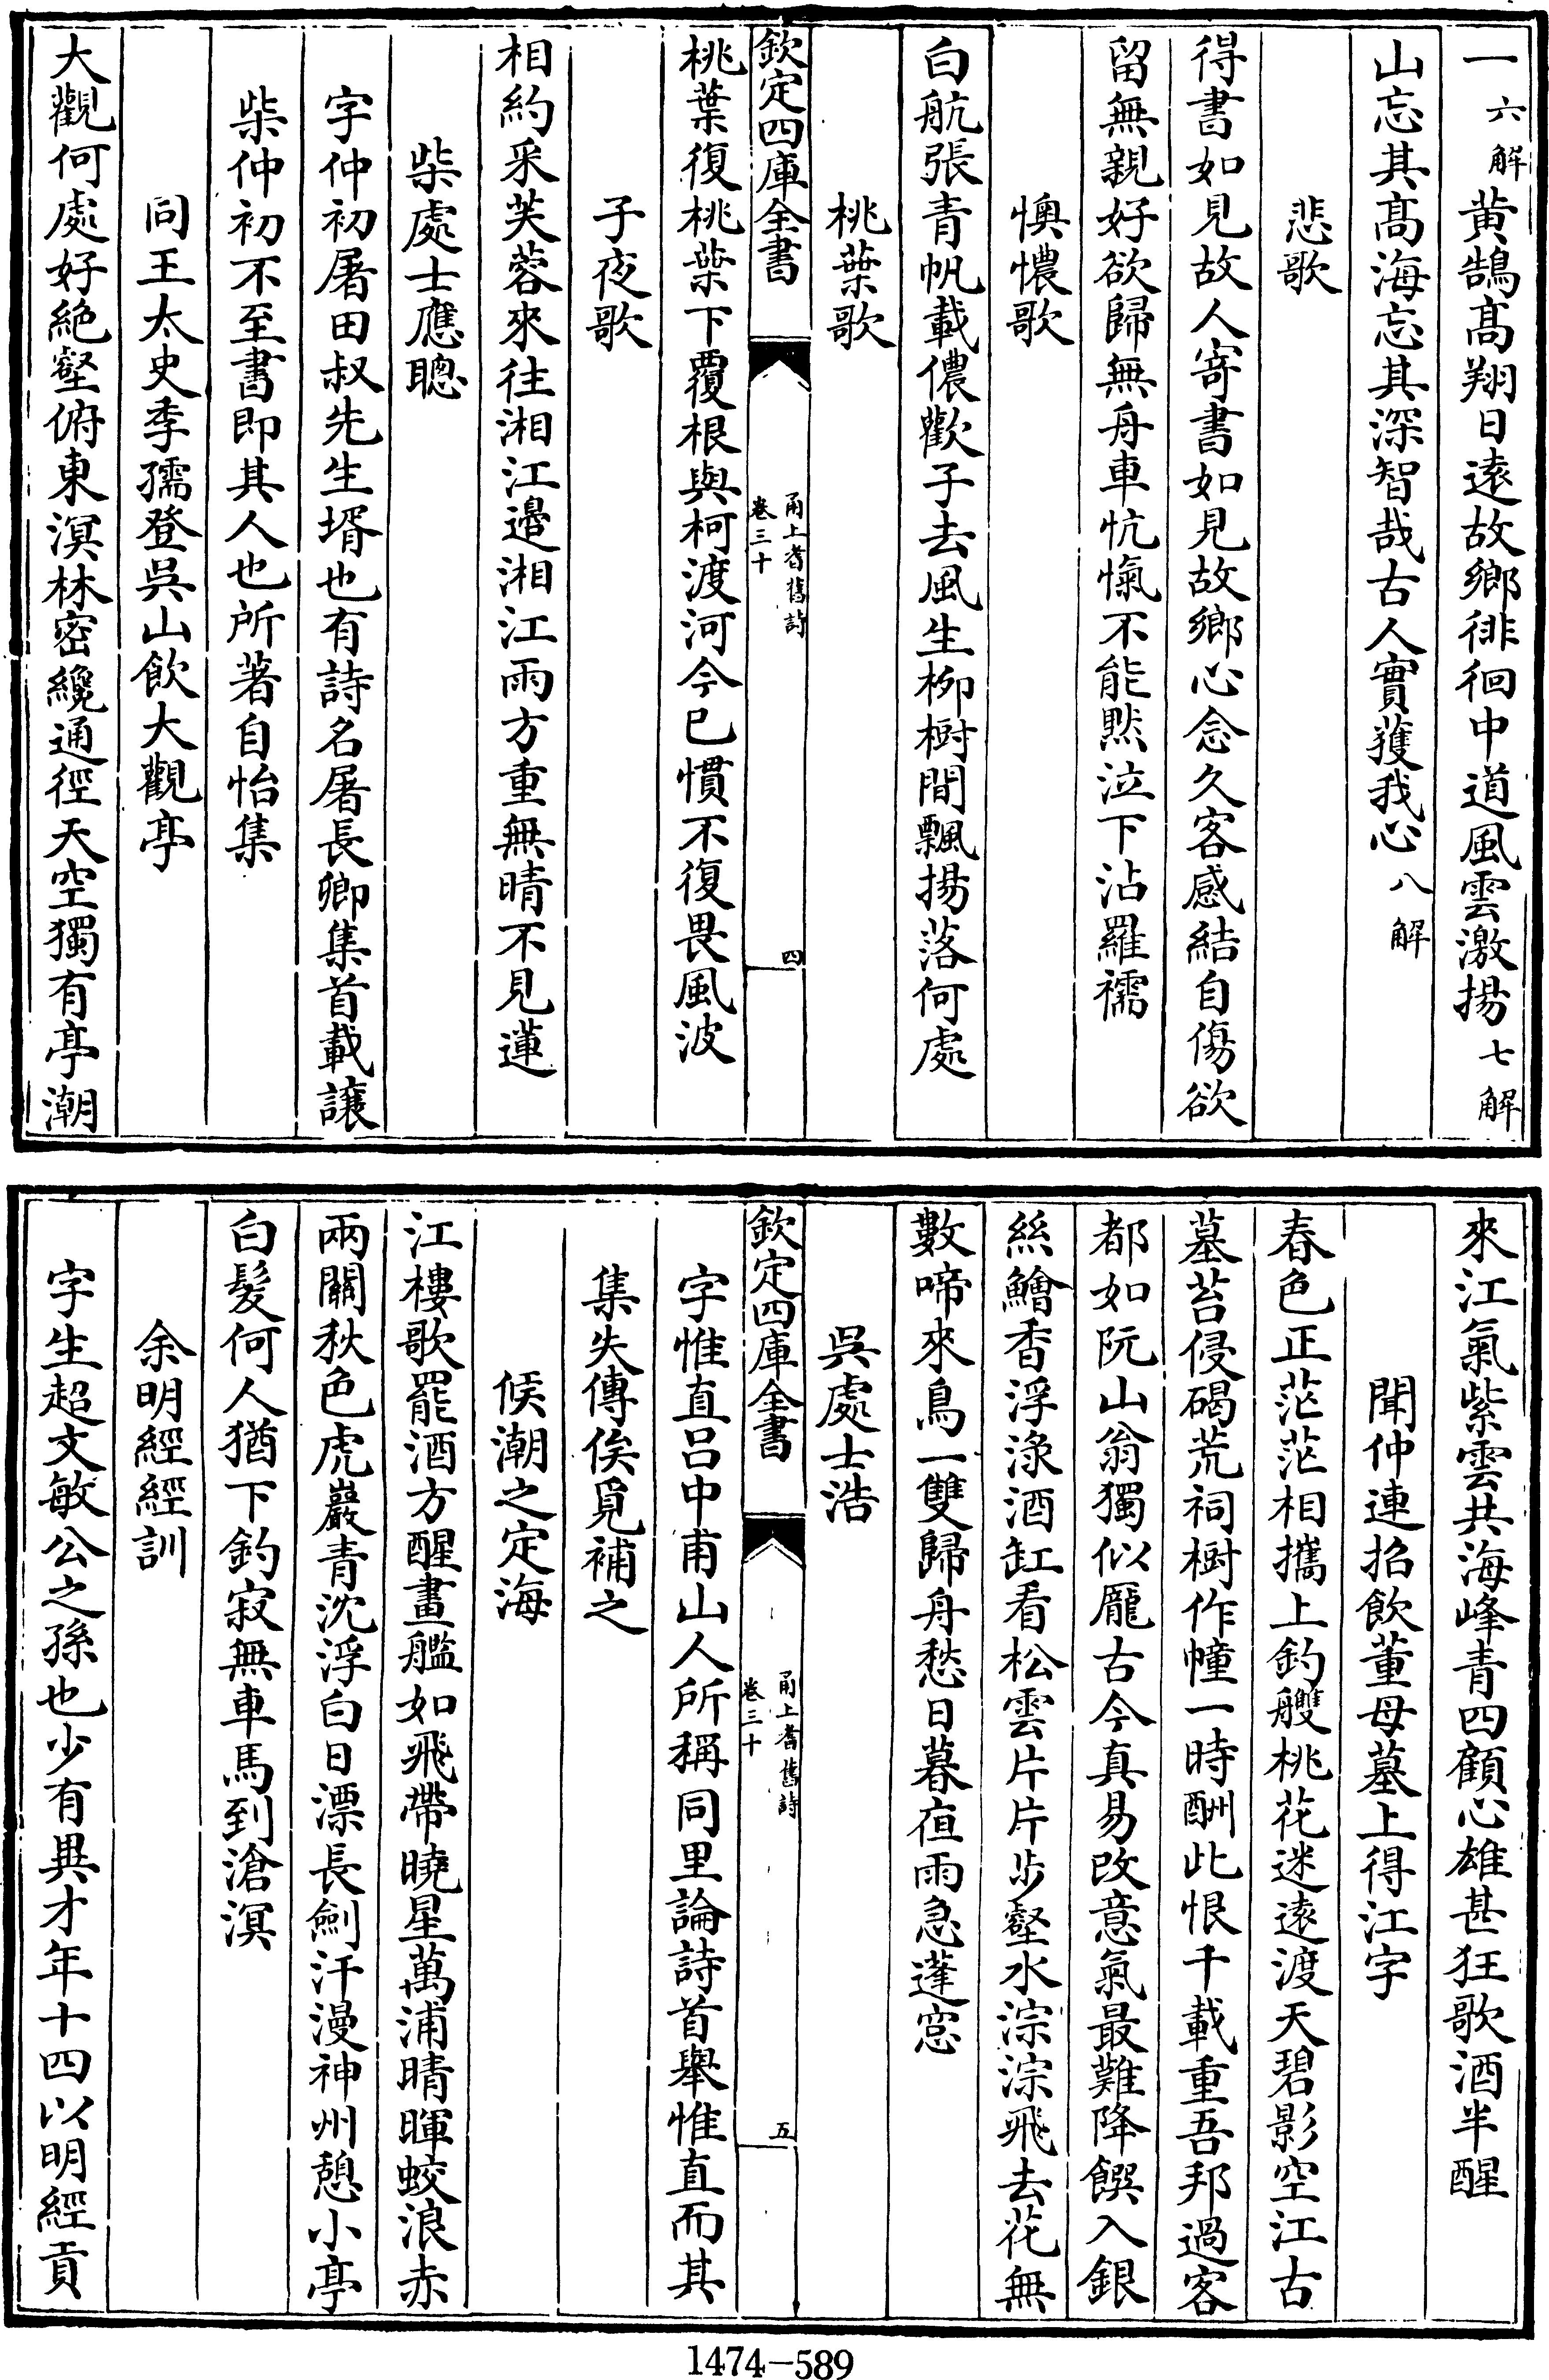 一六解黄鵠髙翔日逺故鄉徘徊中道風雲激揚七解
山忘其髙海忘其深智哉古人實獲我心八解
悲歌
得書如見故人寄書如見故鄉心念久客感結自傷欲
留無親好欲歸無舟車忼愾不能黙泣下沾羅襦
懊憹歌
白航張青帆載儂歡子去風生栁樹間飄揚落何處
桃葉歌
欽定四庫全書
甬上耆舊詩
卷三十
四
桃葉復桃葉下覆根與柯渡河今已慣不復畏風波
子夜歌
相約采芙蓉來往湘江邉湘江雨方重無晴不見蓮
柴處士應聰
字仲初屠田叔先生壻也有詩名屠長卿集首載譲
柴仲初不至書即其人也所著自怡集
同王太史季孺登吳山飲大觀亭
大觀何處好絶壑俯東溟林密纔通徑天空獨有亭潮
來江氣紫雲共海峰青四顧心雄甚狂歌酒半醒
聞仲連招飲董母墓上得江字
春色正茫茫相攜上釣艭桃花迷逺渡天碧影空江古
墓苔侵碣荒祠樹作幢一時酬此恨千載重吾邦過客
都如阮山翁獨似龎古今真易改意氣最難降饌入銀
絲鱠香浮淥酒缸看松雲片片步壑水淙淙飛去花無
數啼來鳥一雙歸舟愁日暮夜雨急蓬窓
吳處士浩
欽定四庫全書
甬上耆舊詩
卷三十
五
字惟直吕中甫山人所稱同里論詩首舉惟直而其
集失傳俟覓補之
候潮之定海
江樓歌罷酒方醒畫艦如飛帶曉星萬浦晴暉蛟浪赤
兩關秋色虎巖青沈浮白日漂長劍汗漫神州憩小亭
白髮何人猶下釣寂無車馬到滄溟
余明經經訓
字生超文敏公之孫也少有異才年十四以明經貢
1474-589